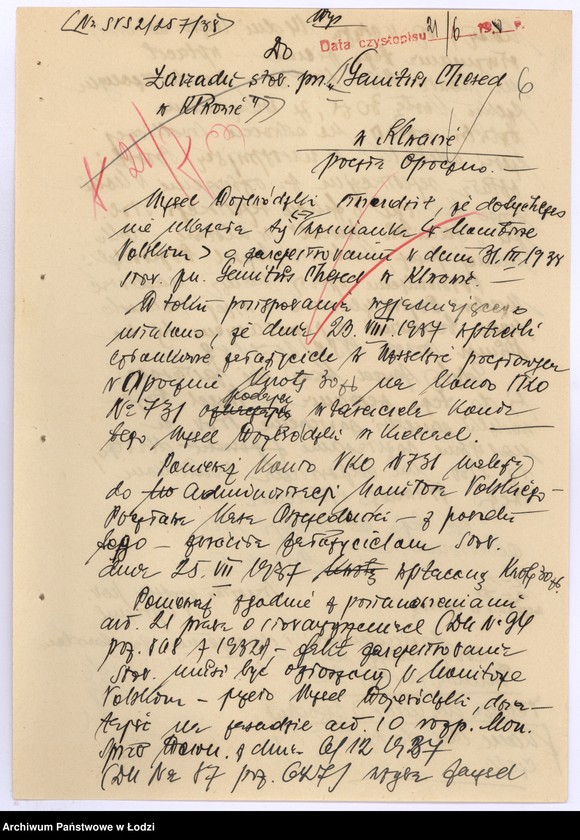 (Nr SVS 2/257/38)
Wyp
Data czystopisu 21/6 193 r.
Do
Zarządu stow. pn. "Gemiłus Chesed 6
w Klwowie"
w Klwowie
poczta Opoczno. —
Urząd Wojewódzki stwierdził, że dotychczas
nie ukazała się wzmianka w Monitorze
Polskim o zarejestrowaniu w dniu 31.III.1938
stow. pn. Gemiłus Chesed w Klwowie. —
W toku postępowania wyjaśniającego
ustalono, że dnia 23.VIII 1937 wpłacili
członkowie założyciele w Urzędzie pocztowym
w Opocznie kwotę 30 zł na konto PKO
Nr 731 podając właściciela konta
tego Urząd Wojewódzki w Kielcach.
Ponieważ konto PKO N 731 należy
do Administracji Monitora Polskiego —
Pocztowa Kasa Oszczędności — z powodu
tego — zwróciła założycielom stow.
dnia 25.VII 1937 wpłaconą kwotę 30 zł.
Ponieważ zgodnie z postanowieniami
art. 21 prawa o stowarzyszeniach (Du Nr 94
poz. 808 z 1932) — fakt zarejestrowania
stow. musi być ogłoszony w Monitorze
Polskim — przeto Urząd Wojewódzki, dzia-
łając na zasadzie art. 10 rozp. Min.
Spraw Wewn. z dnia 12 1937
(Du Nr 87 poz. 627) wzywa Zarząd
Archiwum Państwowe w Łodzi